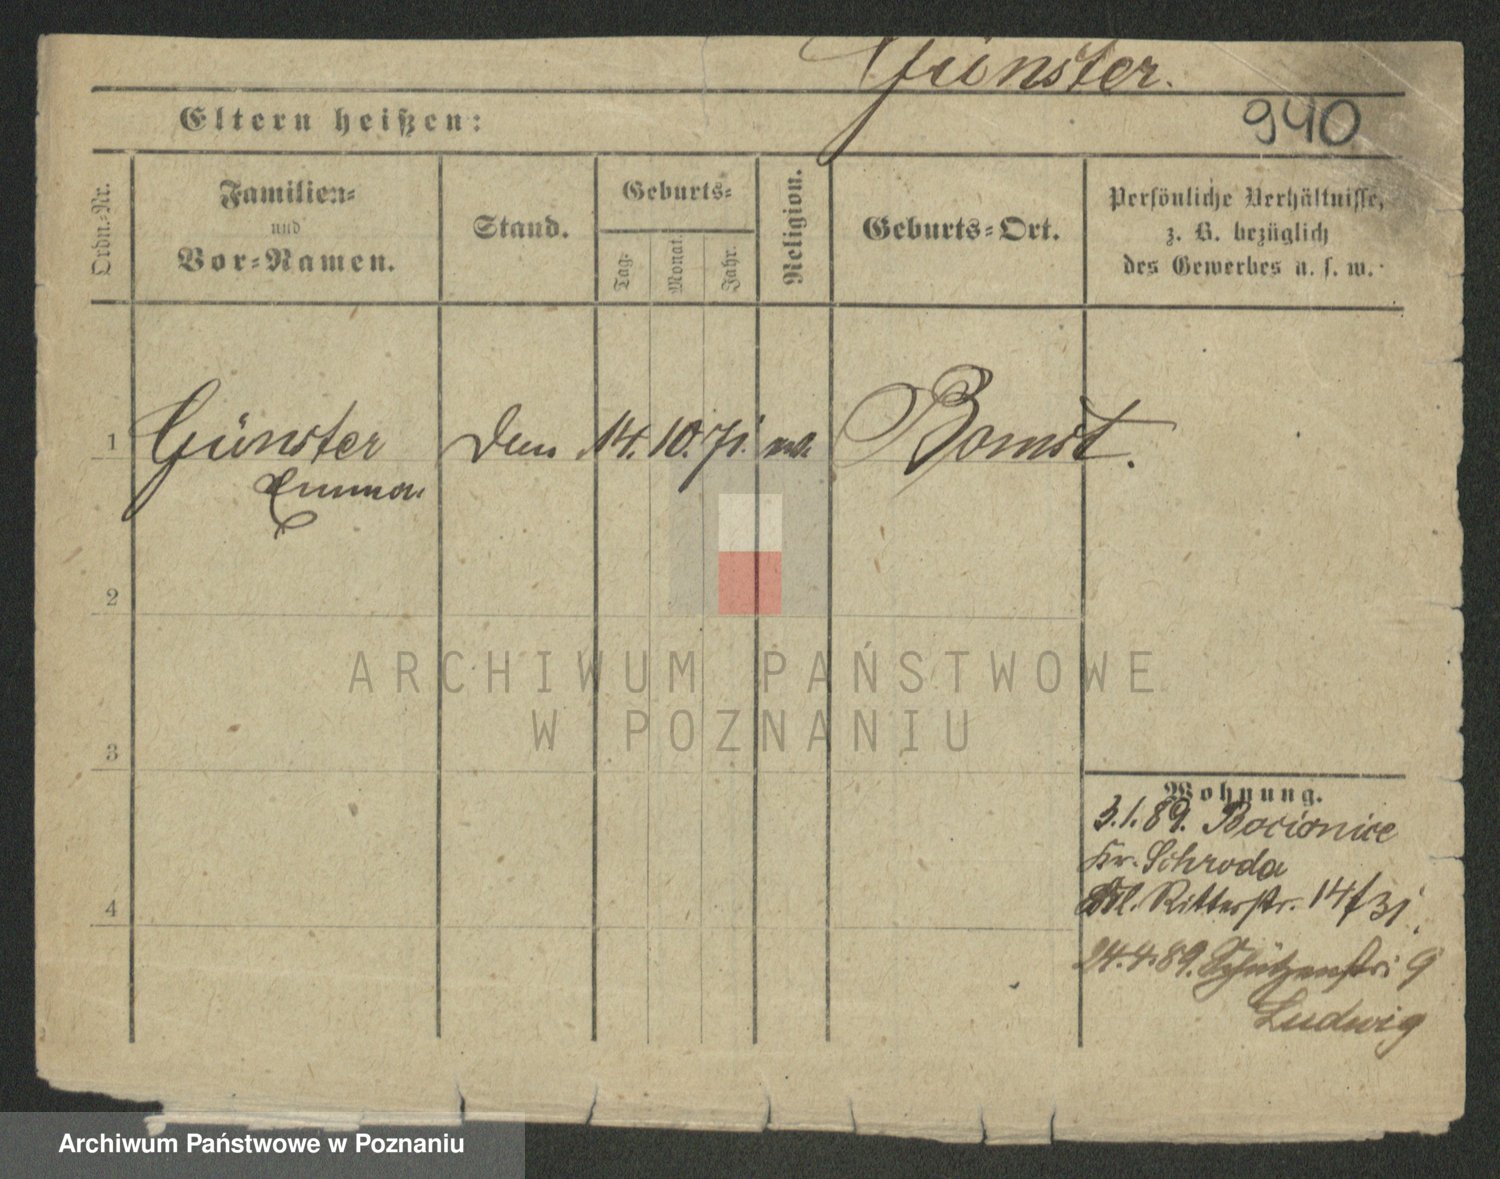 Günster.
940
Eltern heißen:
Ordn.-Nr.
Familien-
und
Vor-Namen.
Stand.
Geburts-
Tag.
Monat.
Jahr.
Religion.
Geburts-Ort.
Persönliche Verhältnisse,
z. B. bezüglich
des Gewerbes u. s. w.
1 Günster 14. 10. 71. Bomst.
Emma
2
3
4
Wohnung.
3.1.89. Bocionice
Kr. Schroda
Ritterstr. 14
14.4.89. Schützenstr. 9
Ludwig
ARCHIWUM PAŃSTWOWE
W POZNANIU
Archiwum Państwowe w Poznaniu